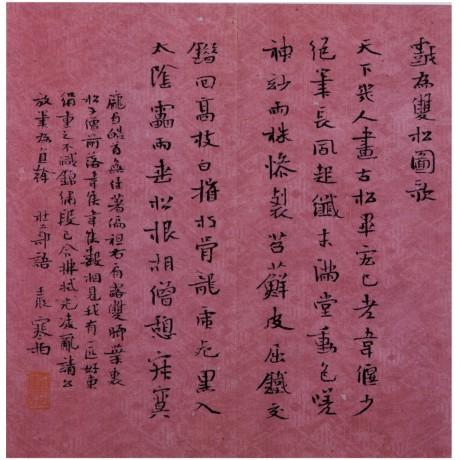 戲為雙松圖歌
天下幾人畫古松畢宏已老韋偃少
絕筆長風起纖末滿堂動色嗟
神妙兩株慘裂苔蘚皮屈鐵交
錯回高枝白摧朽骨龍虎死黑入
太陰靁雨垂松根胡僧憩寂寞
龐眉皓首無住著偏袒右肩露雙腳葉裏
松子僧前落韋侯韋侯數相見我有一匹好東
絹重之不減錦繡段已令拂拭光凌亂請公
放筆為直幹 杜工部語 寒